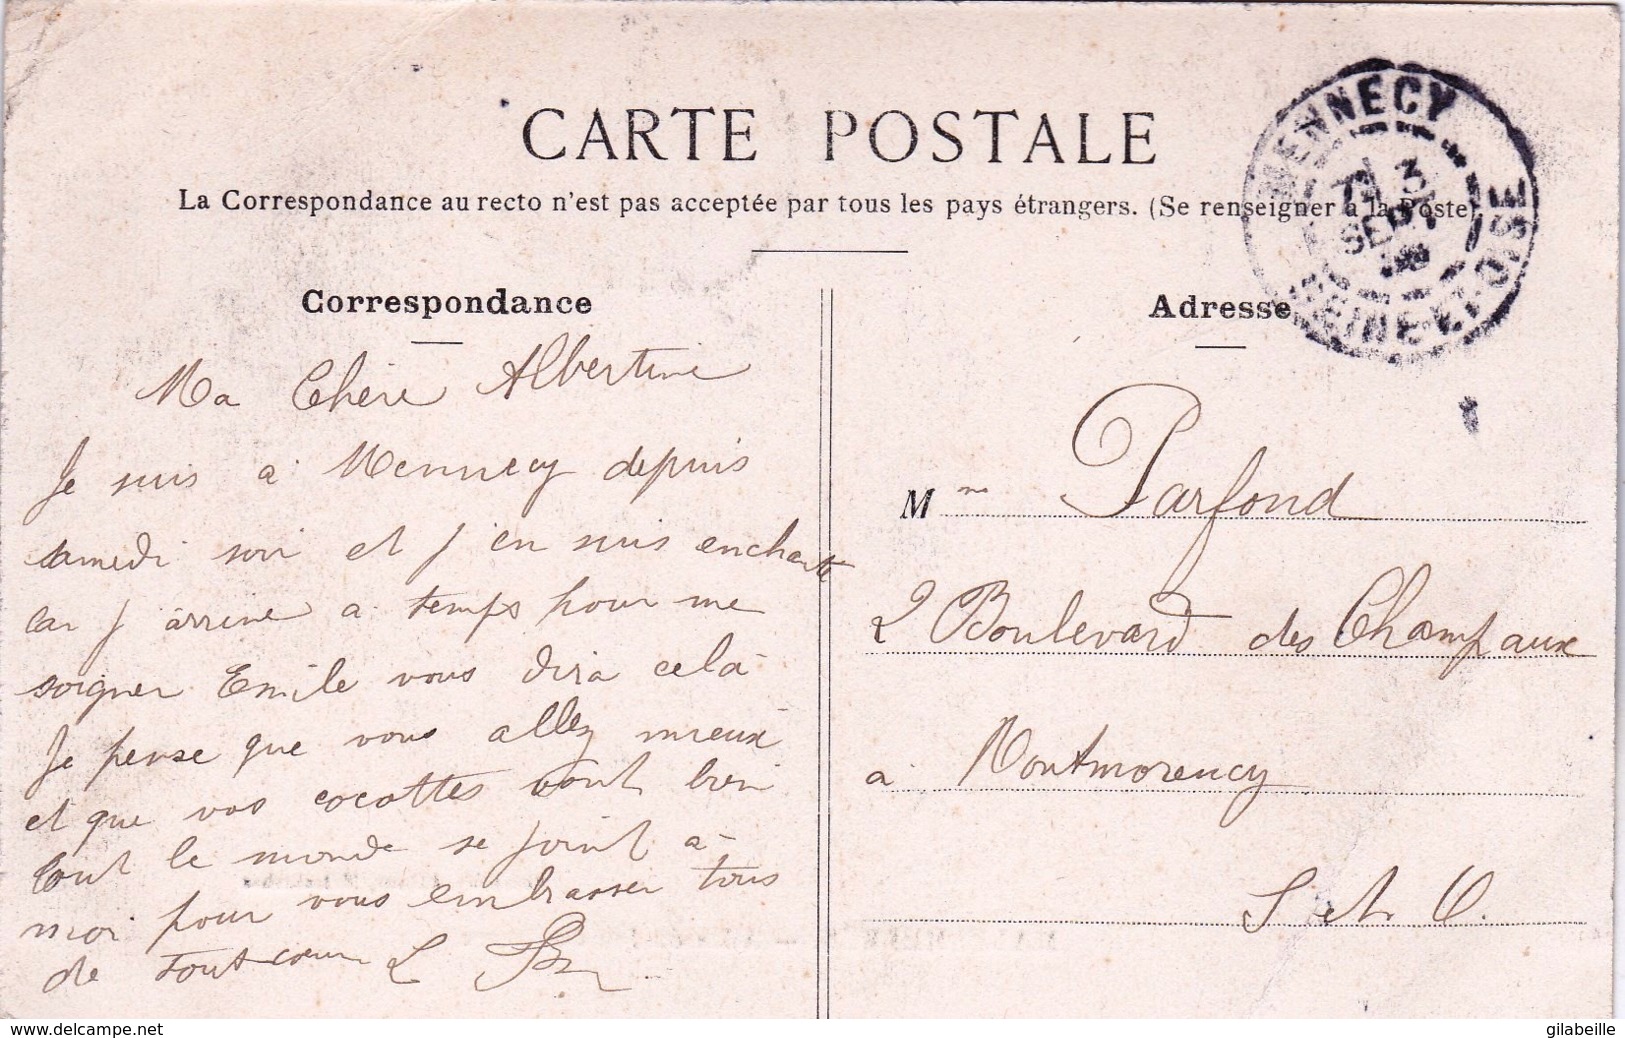 CARTE POSTALE
La Correspondance au recto n'est pas acceptée par tous les pays étrangers. (Se renseigner à la Poste).
MENNECY
3
SEPT
SEINE-ET-OISE
Correspondance
Ma Chère Albertine
Je suis à Mennecy depuis
samedi soir et j'en suis enchanté
car j'arrive à temps pour me
soigner Emile vous dira celà
Je pense que vous allez mieux
et que vos cocottes vont bien
tout le monde se joint à
moi pour vous embrasser tous
de tout coeur L
Adresse
Mme Parfond
2 Boulevard des Champeaux
à Montmorency
S et O.
www.delcampe.net
gilabeille